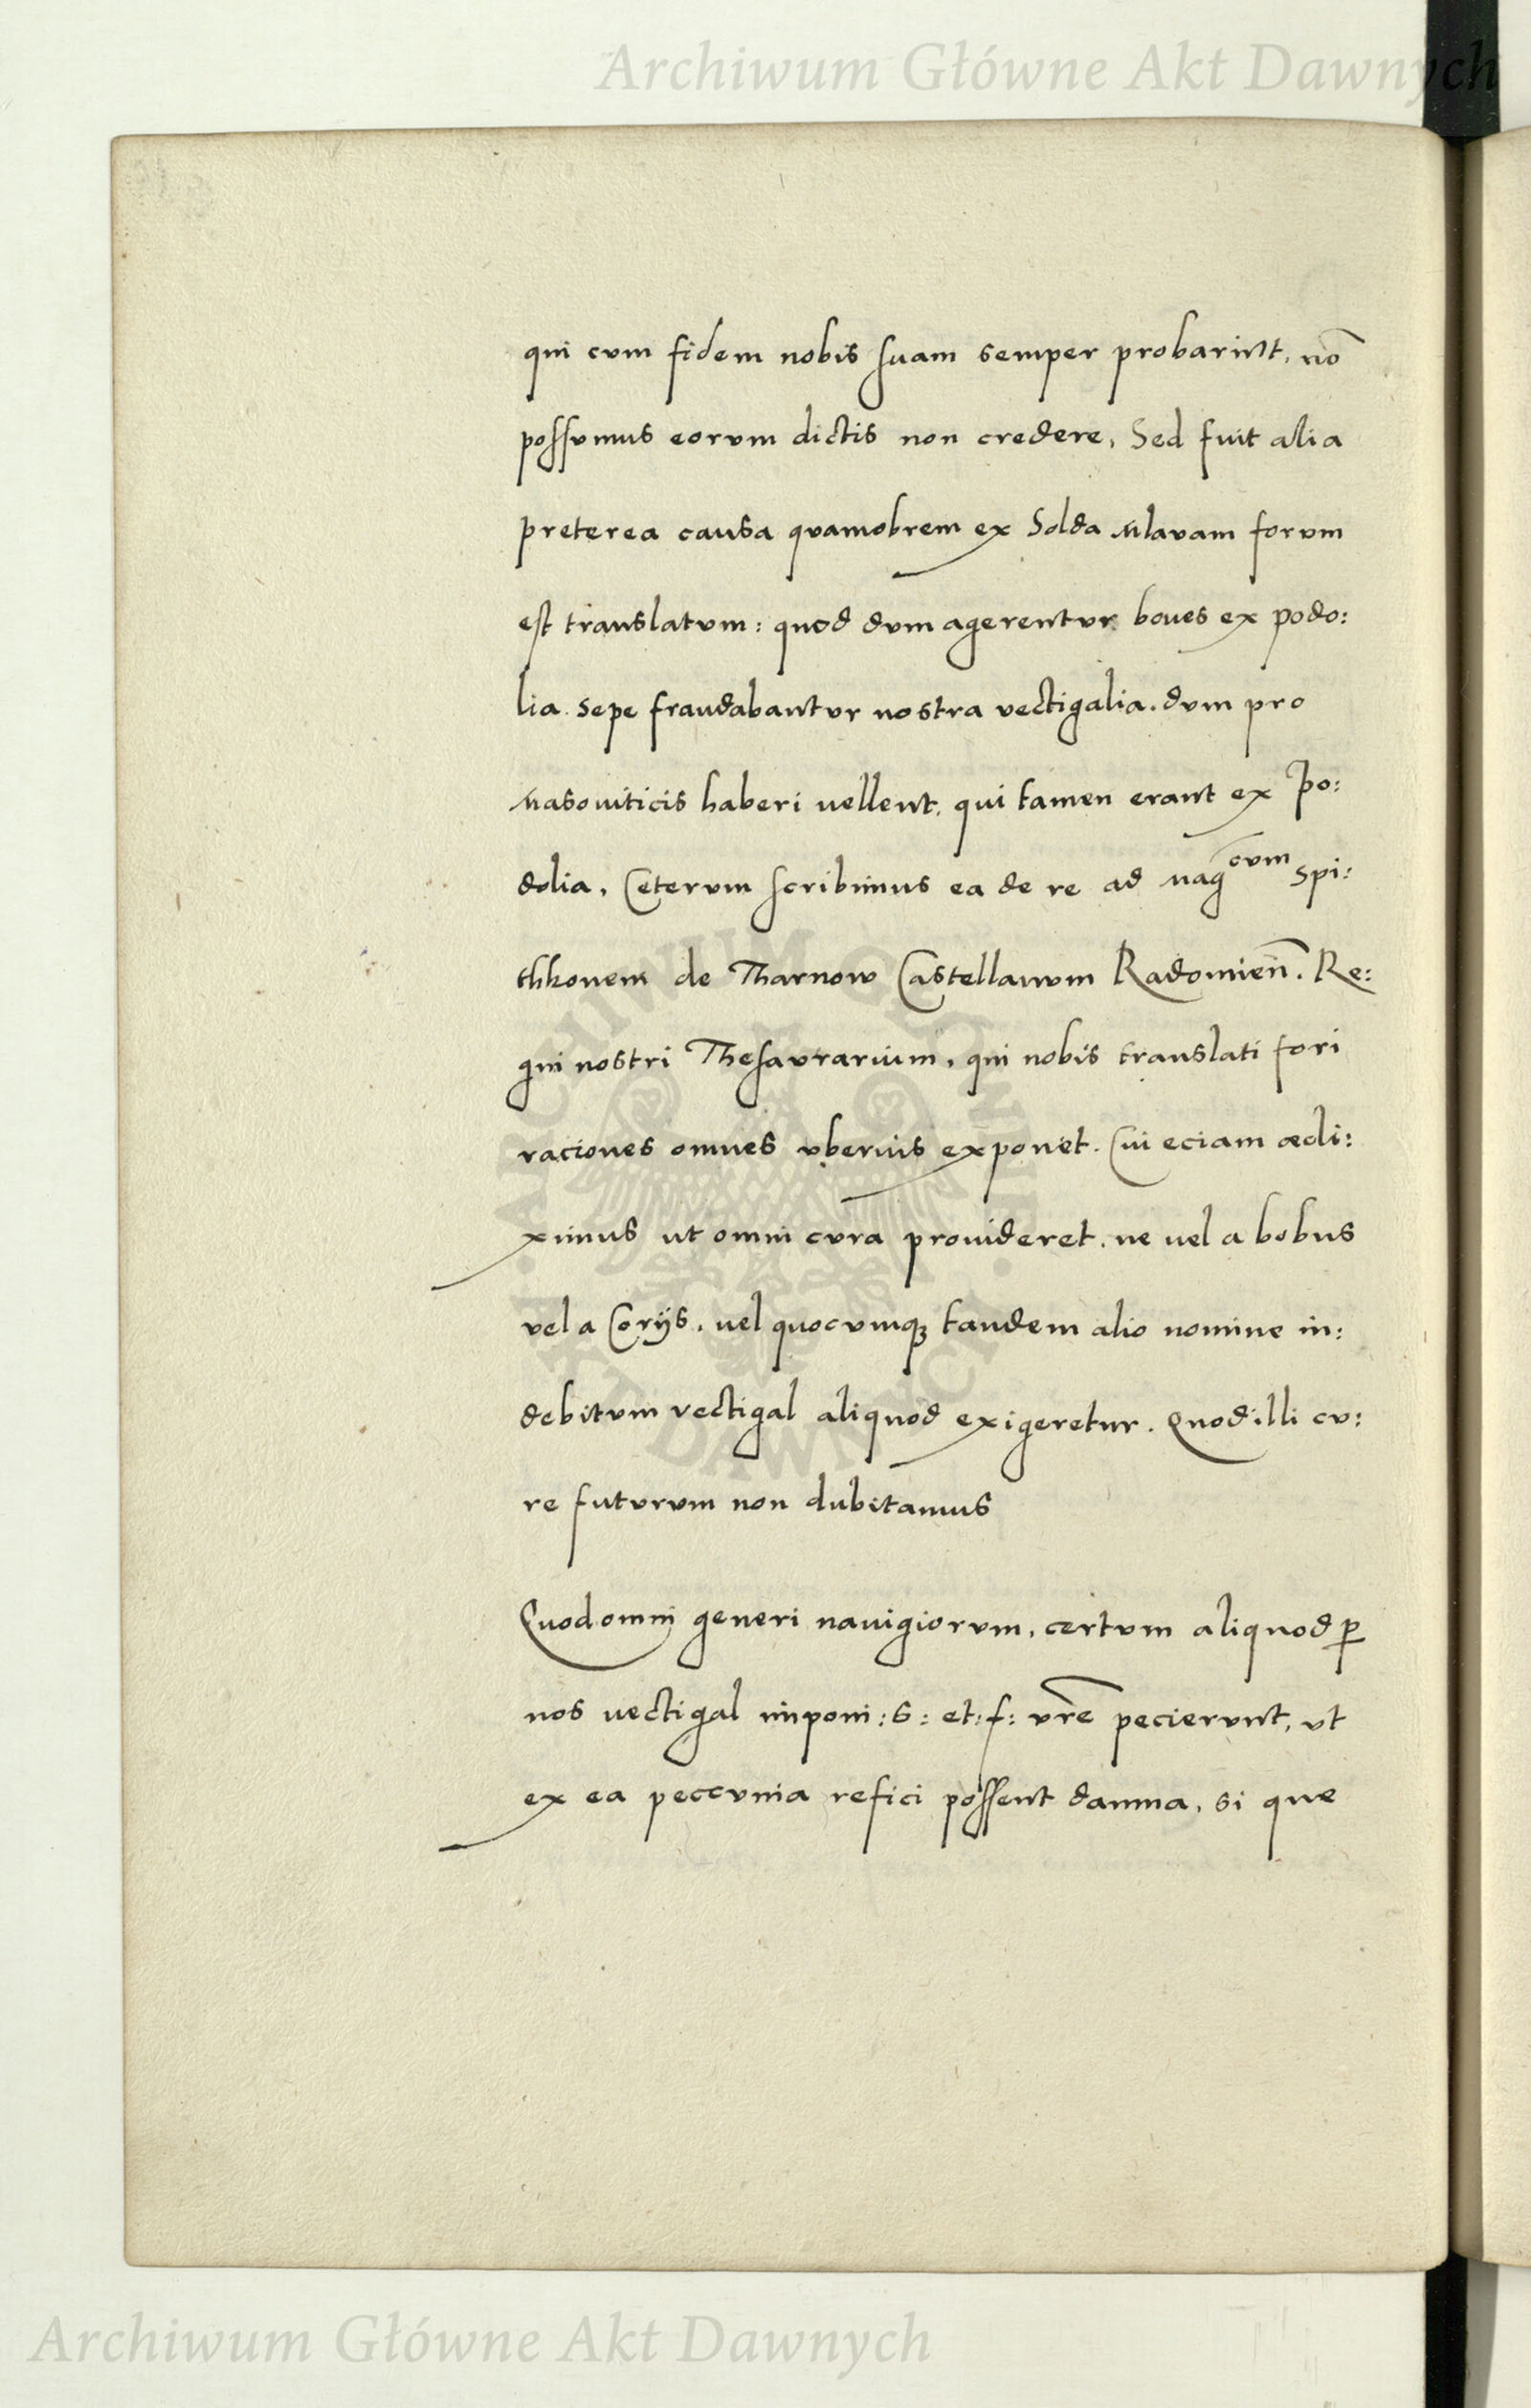 Archiwum Główne Akt Dawnych
qui cvm fidem nobis suam semper probarint, nō
possvmus eorvm dictis non credere, Sed fuit alia
preterea causa qvamobrem ex Solda Mlavam forvm
est translatvm: quod dvm agerentvr boves ex podo:
lia sepe fraudabantvr nostra vectigalia. dvm pro
Masoviticis haberi vellent, qui tamen erant ex Po:
dolia, Cetervm scribimus ea de re ad Mag cvm Spi:
thkonem de Tharnow Castellanvm Radomień. Re:
gni nostri Thesavrarium, qui nobis translati fori
raciones omnes vberius exponet. Cui eciam ædi:
ximus ut omni cvra provideret, ne vel a bobus
vel a Corijs, vel quocvmqȝ tandem alio nomine in:
debitvm vectigal aliquod exigeretur. Quod illi cv:
re futvrvm non dubitamus
Qvod omnj generi navigiorvm, certvm aliquod ꝑ
nos vectigal imponi: S: et: f: vrē peciervnt, vt
ex ea peccvnia refici possent damna, si que
ARCHIWUM GŁÓWNE AKT DAWNYCH
Archiwum Główne Akt Dawnych